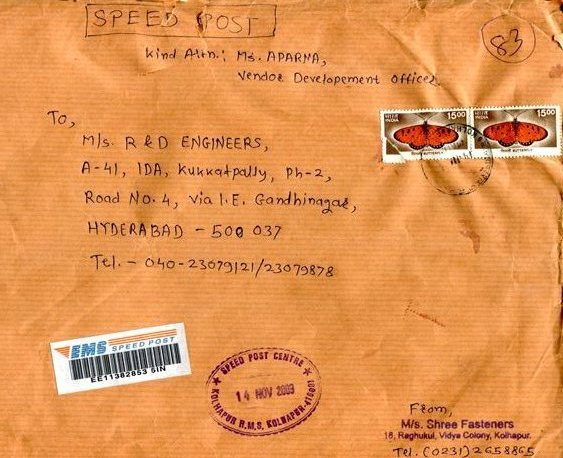 SPEED POST
83
Kind Attn: Ms. APARNA,
Vendor Developement Officer
To,
M/s. R & D ENGINEERS,
A-41, IDA, Kukkatpally, Ph-2,
Road No. 4, via I.E. Gandhinagar,
HYDERABAD - 500 037
Tel. - 040-23079121/23079878
भारत INDIA 1500
भारत INDIA 1500
EMS SPEED POST
EE11382853 5IN
SPEED POST CENTRE
14 NOV 2003
KOLHAPUR R.M.S. KOLHAPUR-416001
From,
M/s. Shree Fasteners
18, Raghukul, Vidya Colony, Kolhapur.
Tel. (0231) 2658865